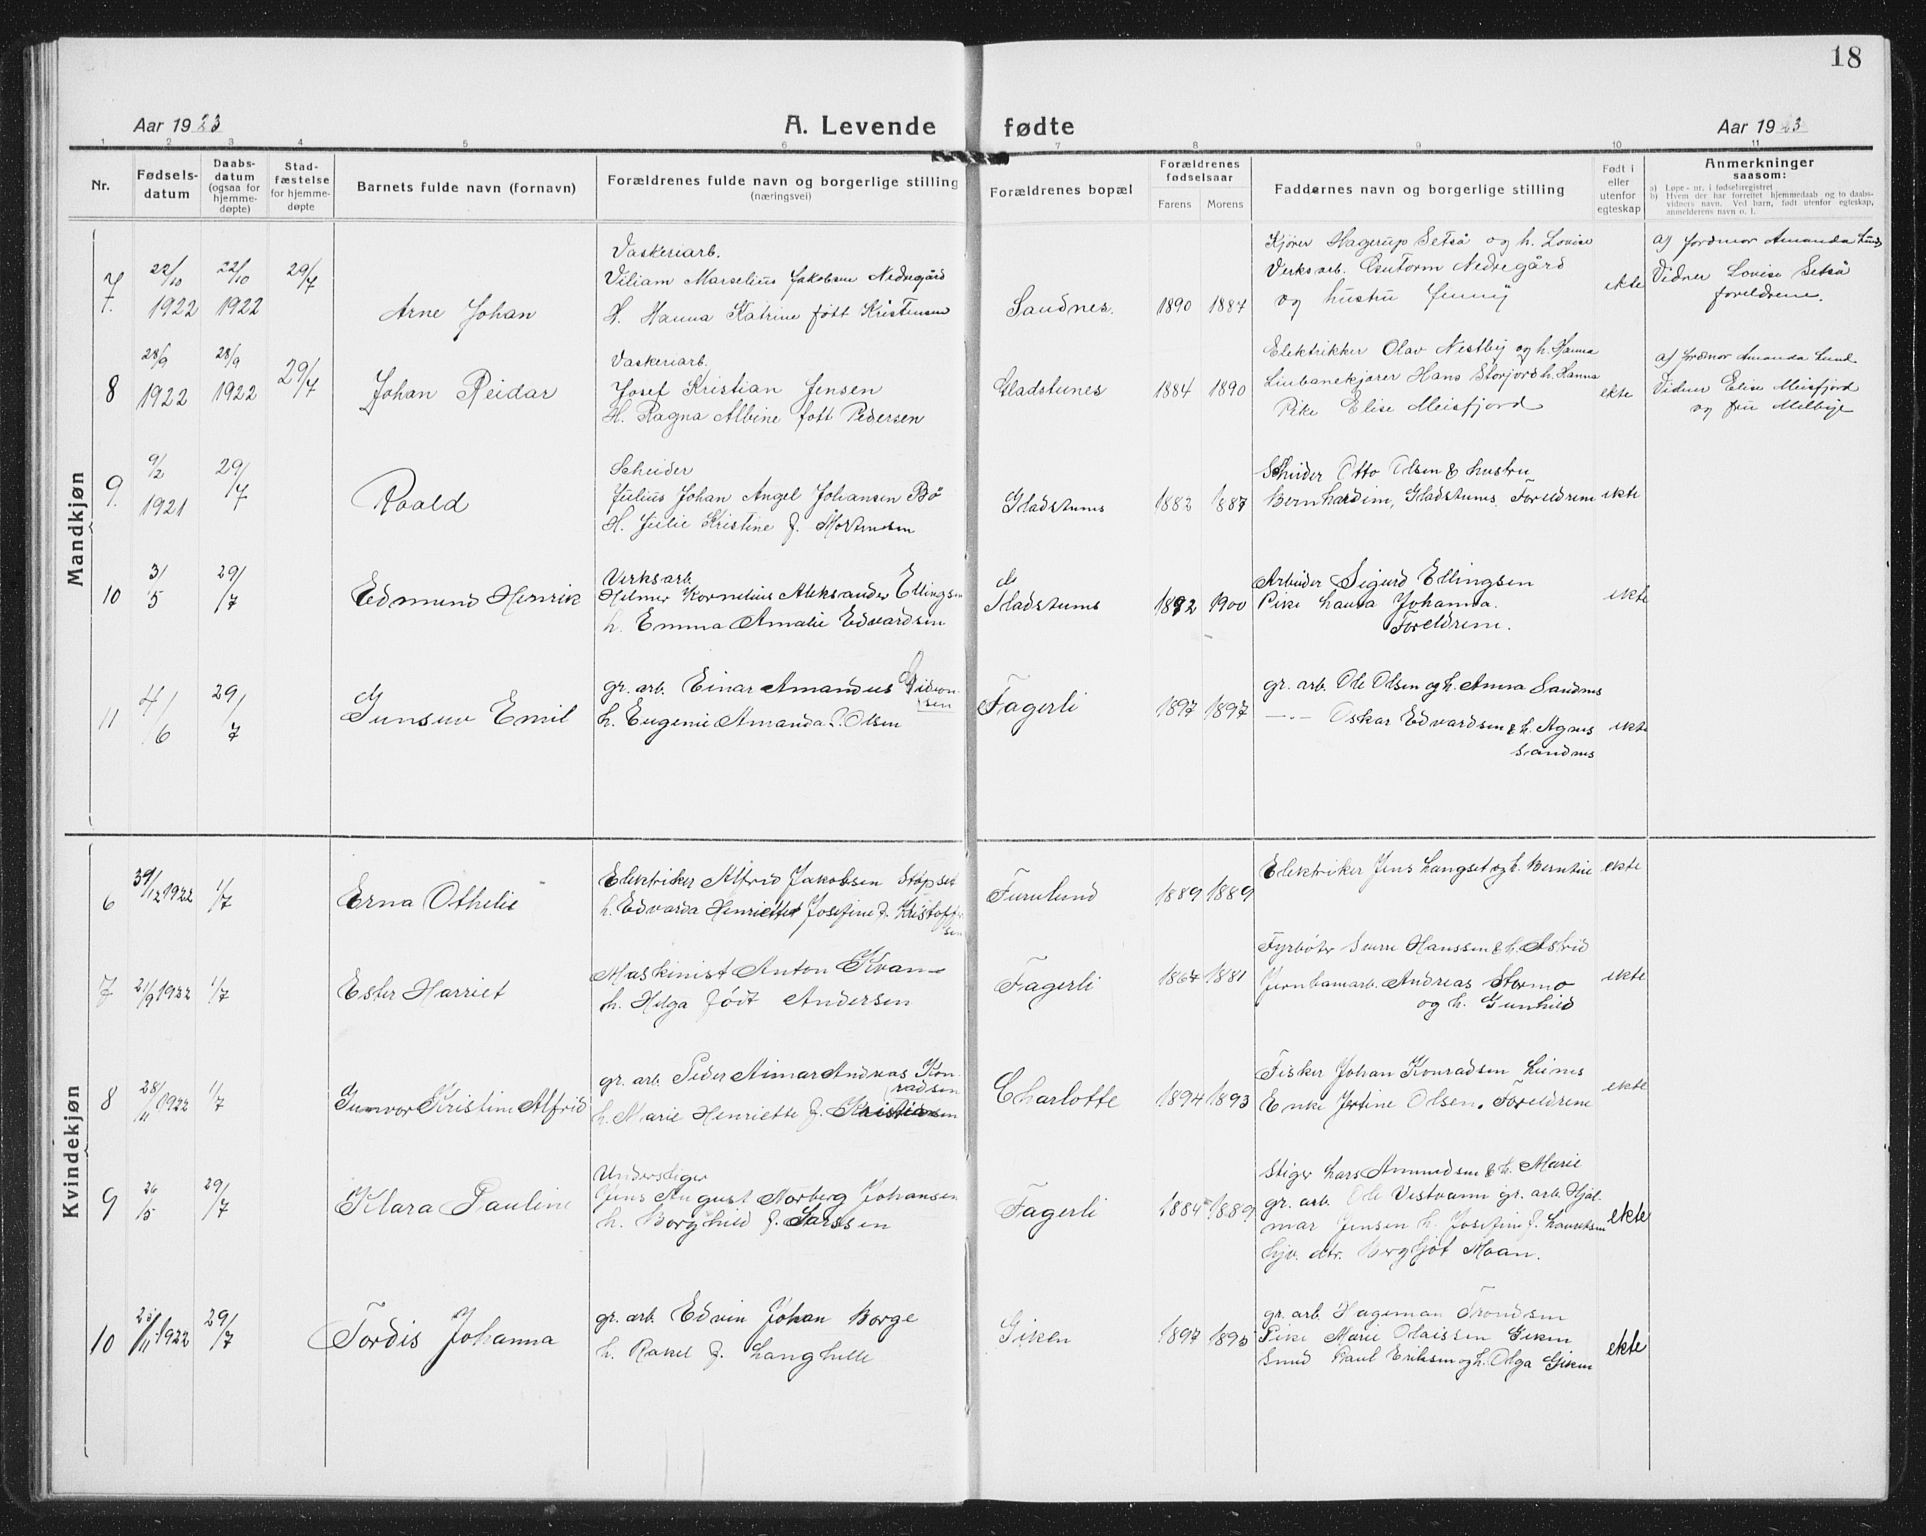 18
Aar 1923 A. Levende fødte Aar 1923
1 2 3 4 5 6 7 8 9 10 11
Nr. Fødselsdatum Daabsdatum (ogsaa for hjemmedøpte) Stadfæstelse for hjemmedøpte Barnets fulde navn (fornavn) Forældrenes fulde navn og borgerlige stilling (næringsvei) Forældrenes bopæl Forældrenes fødselsaar Farens Morens Faddernes navn og borgerlige stilling Født i eller utenfor egteskap Anmerkninger saasom:
a) Løpe-nr. i fødselsregistret
b) Hvem der har forrettet hjemmedaab og to daabsvidners navn. Ved barn, født utenfor egteskap, anmelderens navn o. l.
Mandkjøn
7. 22/10 1922 22/10 1922 29/7 Arne Johan
Vaskeriarb.
Viliam Marselius Jakobsen Nedregård
H. Hanna Katrine født Kristensen
Sandnes. 1890 1884
Kjører Hagerup Setså og h. Lovise
Verksarb. Nedregård
og hustru Jenny
ekte
af Jordmor Amanda Lund
Vidner Lovise Setså
foreldrene.
8 28/9 1922 28/9 1922 29/7 Johan Reidar
Vaskeriarb.
Josef Kristian Jensen
H. Ragna Albine født Pedersen
Gladstunes 1884 1890
Elektrikker Olav Nestby og h. Hanna
Linbanekjører Hans Storjord h. Hanna
Pike Elise Meisfjord
ekte
af Jordmor Amanda Lund
Vidner Elise Meisfjord
og fru Melbye
9. 9/2 1921 29/7 Roald
Scheider
Julius Johan Angel Johansen Bö
H. Julie Kristine f. Mortensen
Gladstunes 1882 1887
Scheider Otto Olsen & hustru
Bernhardine, Gladstunes, Foreldrene
ekte
10 3/5 29/7 Edmund Henrik
Verksarb.
Helmer Kornelius Aleksander Ellingsen
h. Emma Amalie Edvardsen
Gladstunes 1892 1900
Arbeider Sigurd Ellingsen
Pike Laura Johanna.
Foreldrene.
ekte
11 4/6 29/7 Gunsuv Emil
gr. arb. Einar Amandus Gideonsen
h. Eugenie Amanda f. Olsen
Fagerli 1897 1897
gr. arb. Ole Olsen og h. Anna Sandnes
—"— Oskar Edvardsen & h. Agnes
Sandnes
ekte
Kvindekjøn
6 1922 1/7 Erna Othelie
Elektriker Alfrid Jakobsen Stöpset
h. Edvarda Henriette Josefine f. Kristoffersen
Furulund 1889 1889
Elektriker Jens Langset og h. Berntine
ekte
7 21/9 1922 1/7 Ester Harriet
Maskinist Anton Kvam
h. Helga født Andersen
Fagerli 1864 1881
Fyrbøter Sverre Hanssen & h. Astrid
Jernbanearb. Andreas Stormo
og h. Gunhild
ekte
8 28/11 1922 1/7 Gunvor Kristine Alfrid
gr. arb. Peder Aimar Andreas Konradsen
h. Marie Henriette f. Kristiansen
Charlotte 1894 1893
Fisker Johan Konradsen Leines
Enke Jertine Olsen. Foreldrene
ekte
9 26/5 29/7 Klara Pauline
Understiger
Jens August Norberg Johansen
h. Borghild f. Larssen
Fagerli 1884 1889
Stiger Lars Amundsen & h. Marie
gr. arb. Ole Vestvann gr. arb. Hjalmar Jensen h. Josefine f. Lauritsen
hjv. dtr. Bergljot Moan.
ekte
10 1922 29/7 Tordis Johanna
gr. arb. Edvin Johan Borge
h. Rakel f. Langhelle
Giken 1897 1895
gr. arb. Hageman Trondsen
Pike Marie Olaissen Giken
Smed Paul Eriksen og h. Olga Giken
ekte